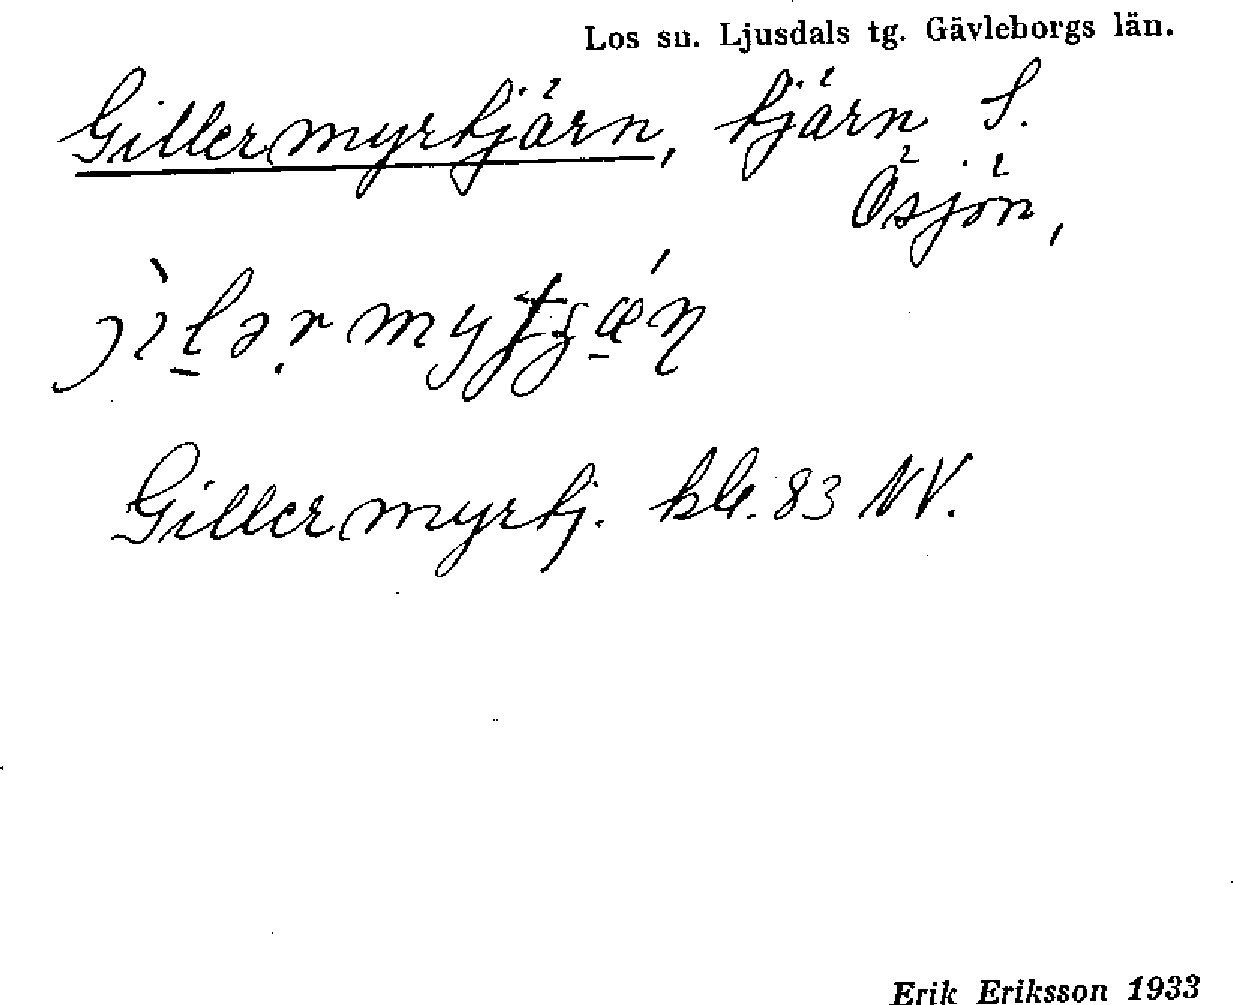 Los sn. Ljusdals tg. Gävleborgs län.
Gillermyrtjärn, tjärn S.
Ösjön,
Gillermyrtj. kbl. 83 NV.
Erik Eriksson 1933